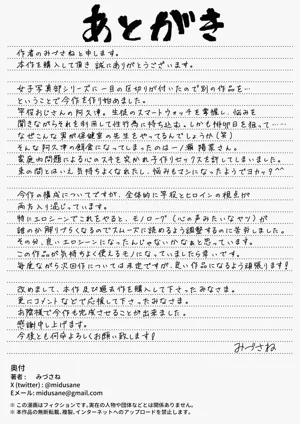 あとがき
作者のみづさねと申します。
本作を購入して頂き誠にありがとうございます。
女子写真部シリーズに一旦の区切りが付いたので別の作品を…
ということで今作を作り始めました。
平和おじさんの阿久津。生徒のスマートウォッチを掌握し、悩みを
聞きながらそれを利用して性行為に持ち込む。しかも排卵日を狙って……
なぜこんな男が保健室の先生をやってるんでしょうか(笑)
そんな阿久津の餌食になってしまったのは一ノ瀬陽菜さん。
家庭内問題による心のスキを突かれ子作りセックスを許してしまいました。
束の間とはいえ気持ちよくなれたし、悩みもマシになったようでヨカッタ?^^
今作の構成についてですが、全体的に
とヒロインの視点が
両方入り混じっています。
特にエロシーンでこれをやると、モノローグ(心の声みたいなヤツ)が
誰のか解りづらくなるのでスムーズに読めるよう調整するのに苦労しました。
その分、良いエロシーンになったんじゃないかなぁと思っています。
この作品が気持ちよく使えるモノになっていましたら幸いです。
毎度ながら次回作については未定ですが、良い作品になるよう頑張ります!
改めまして、本作及び過去作を購入して下さったみなさま。
更にコメントなどで応援して下さったみなさま。
お陰様で今作も完成させることが出来ました。
感謝申し上げます。
今後とも何卒よろしくお願い致します!
みづさね
奥付
著者： みづさね
X (twitter) : @midusane
Eメール: midusane@gmail.com
※この漫画はフィクションです。実在の人物や団体などとは関係ありません。
※本作品の無断転載、複製、インターネットへのアップロードを禁止します。